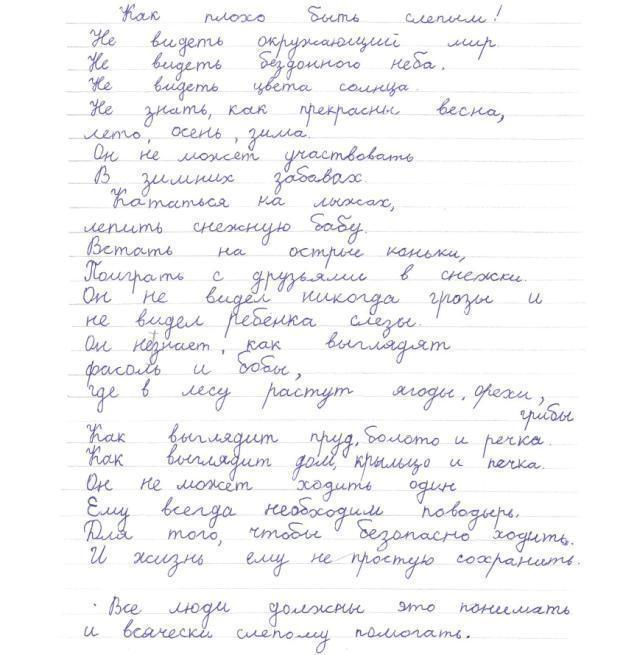 Как плохо быть слепым!
Не видеть окружающий мир
Не видеть бездонного неба.
Не видеть цвета солнца.
Не знать, как прекрасны весна,
лето, осень, зима.
Он не может участвовать
В зимних забавах.
Кататься на лыжах,
лепить снежную бабу.
Встать на острые коньки,
Поиграть с друзьями в снежки.
Он не видел никогда грозы и
не видел ребенка слезы.
Он не знает, как выглядят
фасоль и бобы,
где в лесу растут ягоды, орехи,
грибы
Как выглядит пруд, болото и речка.
Как выглядит дом, крыльцо и печка.
Он не может ходить один
Ему всегда необходим поводырь.
Для того, чтобы безопасно ходить.
И жизнь ему не простую сохранить.
Все люди должны это понимать
и всячески слепому помогать.